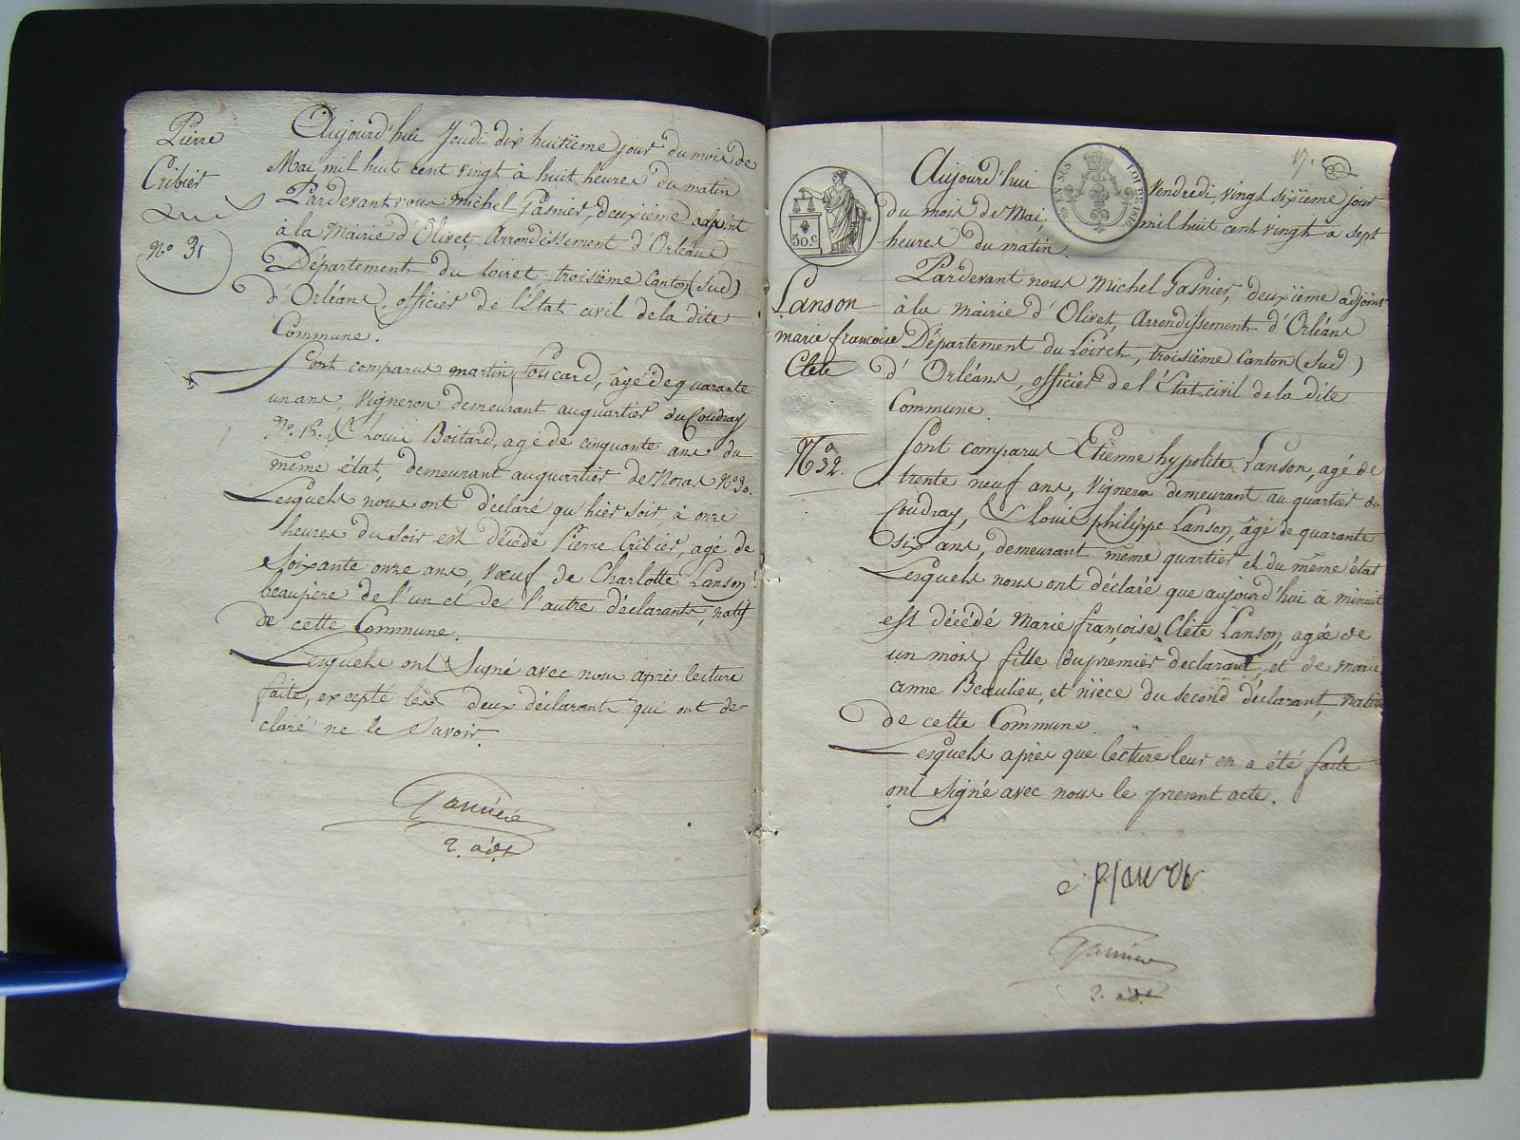 Pierre
Cribier
N° 31
Aujourd'hui Jeudi dix huitième jour du mois de
Mai mil huit cent vingt à huit heures du matin
Pardevant nous Michel Gasnier, deuxième adjoint
à la Mairie d'Olivet, Arrondissement d'Orléans
Département du Loiret troisième Canton (Sud)
d'Orléans, officier de l'Etat civil de la dite
Commune.
Sont comparus martin Foucard, âgé de quarante
un ans, Vigneron demeurant au quartier du Coudray
N°. 15. & Louis Boitard, agé de cinquante ans du
même état, demeurant au quartier de N° 30.
Lesquels nous ont déclaré qu'hier soir, à onze
heures du soir est décédé Pierre Cribier, agé de
soixante onze ans, Vœuf de Charlotte Lanson
beaupère de l'un et de l'autre déclarants, natif
de cette Commune.
Lesquels ont Signé avec nous après lecture
faite, excepté les deux déclarants qui ont dé-
claré ne le Savoir.
2. adt
17.
50 c
Aujourd'hui Vendredi, vingt sixième jour
du mois de Mai, mil huit cent vingt à sept
heures du matin.
Lanson
marie françoise
Clète
N° 32.
Pardevant nous Michel Gasnier, deuxième adjoint
à la Mairie d'Olivet, Arrondissement d'Orléans
Département du Loiret, troisième Canton (Sud)
d'Orléans, officier de l'Etat civil de la dite
Commune.
Sont comparus Etienne hypolite Lanson, agé de
trente neuf ans, Vigneron demeurant au quartier du
Coudray, & louis philippe Lanson, âgé de quarante
six ans, demeurant même quartier et du même état
Lesquels nous ont déclaré que aujourd'hui à minuit
est décédé Marie françoise Clète Lanson, agée de
un mois, fille du premier declarant, et de Marie
anne Beaulieu, et nièce du second déclarant, native
de cette Commune.
Lesquels après que lecture leur en a été faite
ont signé avec nous le présent acte.
2. adt